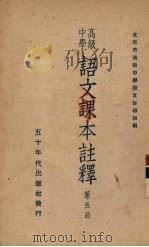 北京市高級中學語文教師註編
高級
中學
語文課本註釋
第五冊
五十年代出版社發行